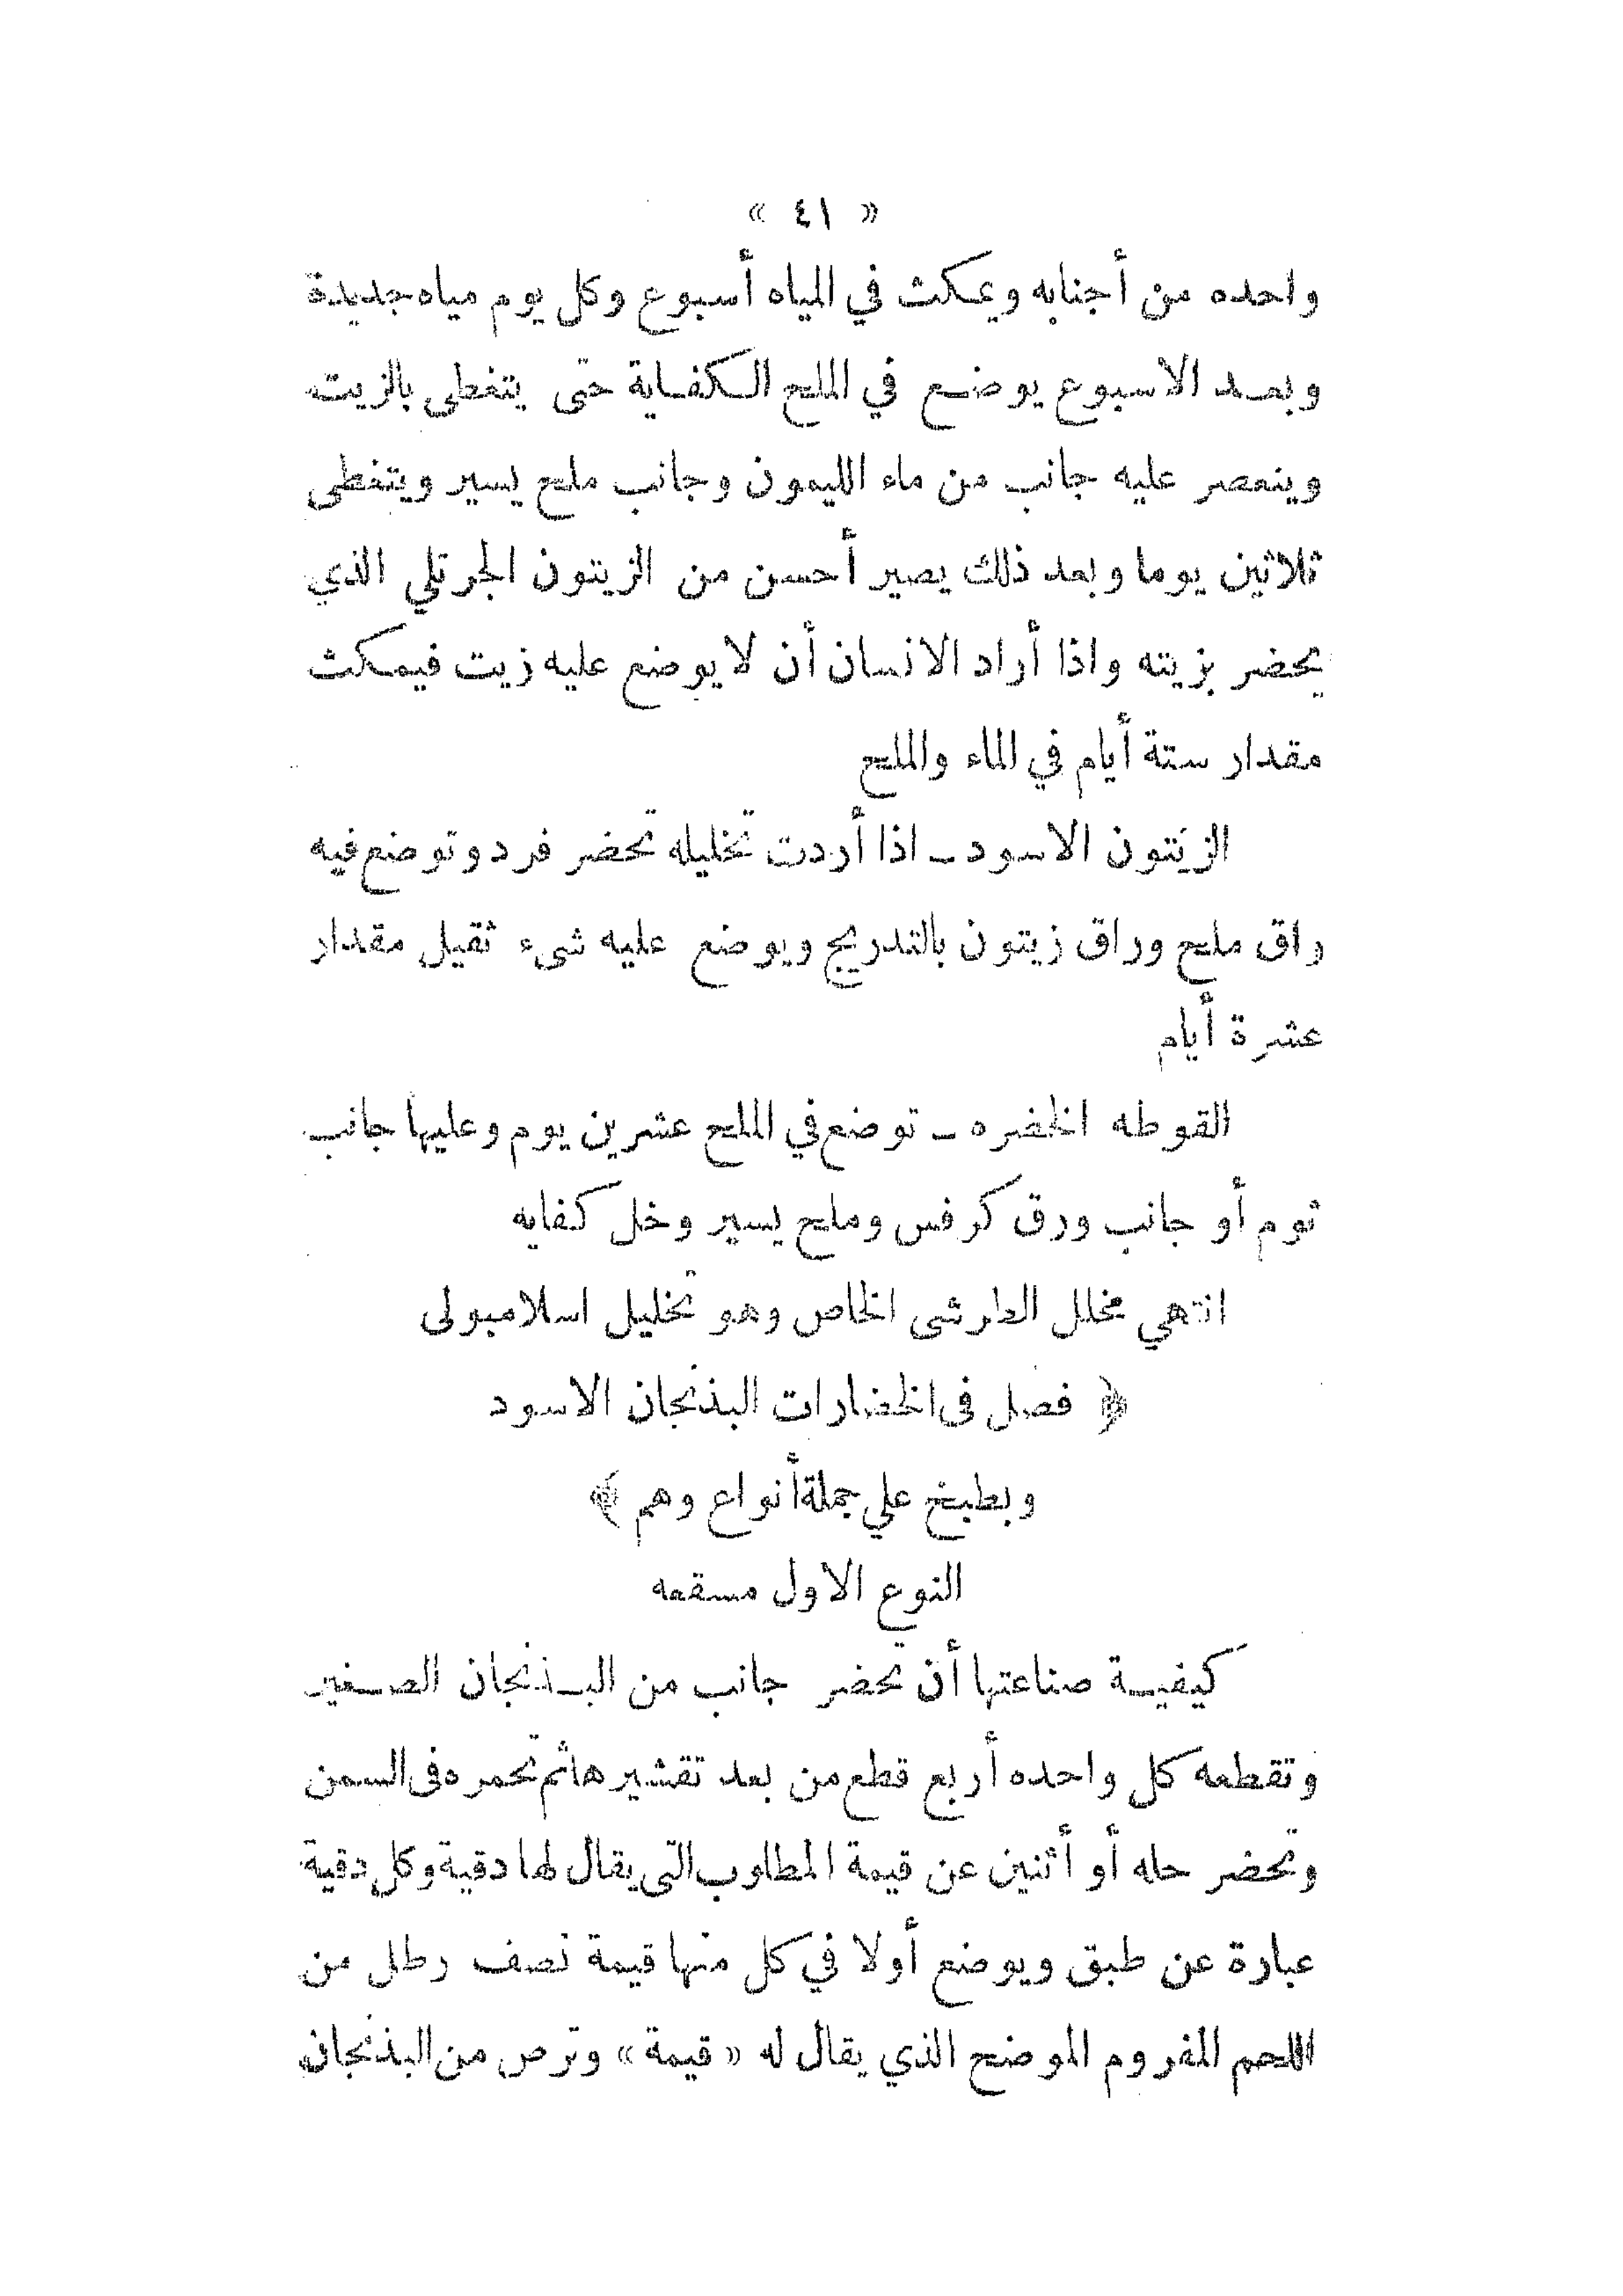 « ٤١ »
واحده من أجنابه ويمكث في المياه أسبوع وكل يوم مياه جديدة
وبعد الاسبوع يوضع في الملح الكفاية حتى يتغطى بالزيت
وينعصر عليه جانب من ماء الليمون وجانب ملح يسير ويتغطى
ثلاثين يوما وبعد ذلك يصير أحسن من الزيتون الجرتلي الذي
يحضر بزيته واذا أراد الانسان أن لا يوضع عليه زيت فيمكث
مقدار ستة أيام في الماء والملح
الزيتون الاسود ـ اذا أردت تخليله تحضر فرد وتوضع فيه
راق ملح وراق زيتون بالتدريج ويوضع عليه شىء ثقيل مقدار
عشرة أيام
القوطه الخضره ـ توضع في الملح عشرين يوم وعليها جانب
ثوم أو جانب ورق كرفس وملح يسير وخل كفايه
انتهي مخلل الطرشى الخاص وهو تخليل اسلامبولى
﴿ فصل فى الخضارات البذنجان الاسود
ويطبخ علي جملة أنواع وهم ﴾
النوع الاول مسقعه
كيفية صناعتها أن تحضر جانب من البذنجان الصغير
وتقطعه كل واحده أربع قطع من بعد تقشيرها ثم تحمره فى السمن
وتحضر حله أو أثنين عن قيمة المطلوب التى يقال لها دقية وكل دقية
عبارة عن طبق ويوضع أولا في كل منها قيمة نصف رطل من
اللحم المفروم الموضح الذي يقال له « قيمة » وترص من البذنجان